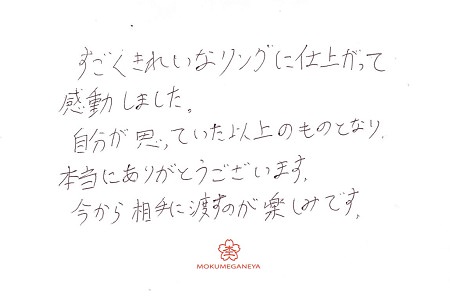 すごくきれいなリングに仕上がって
感動しました。
自分が思っていた以上のものとなり、
本当にありがとうございます。
今から相手に渡すのが楽しみです。
MOKUMEGANEYA